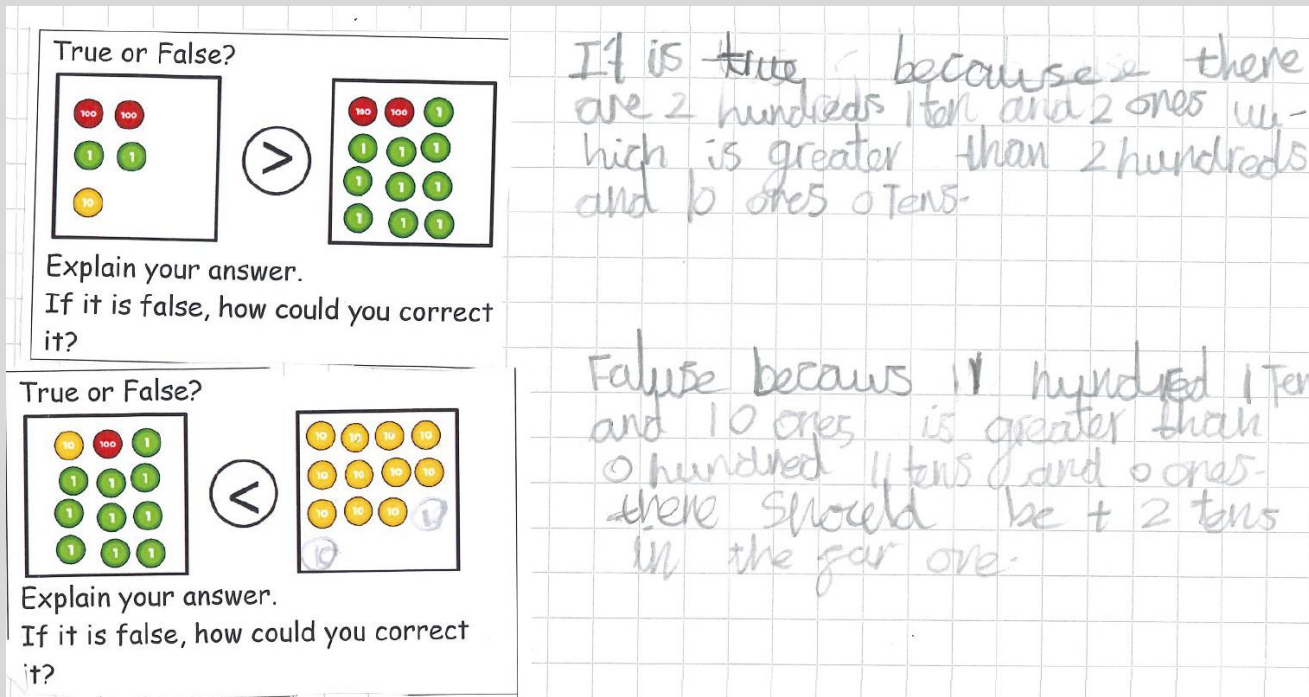 True or False?
100 100
1 1
10
>
100 100 1
1 1 1
1 1 1
1 1 1
Explain your answer.
If it is false, how could you correct
it?
It is true because there
are 2 hundreds 1 ten and 2 ones w-
hich is greater than 2 hundreds
and 10 ones 0 Tens.
True or False?
10 100 1
1 1 1
1 1 1
1 1 1
<
10 10 10 10
10 10 10 10
10 10 10
10
Explain your answer.
If it is false, how could you correct
it?
Faluse becaus 1 hundred 1 Ten
and 10 ones is greater than
0 hundred 11 tens and 0 ones.
there should be + 2 tens
in the far one.